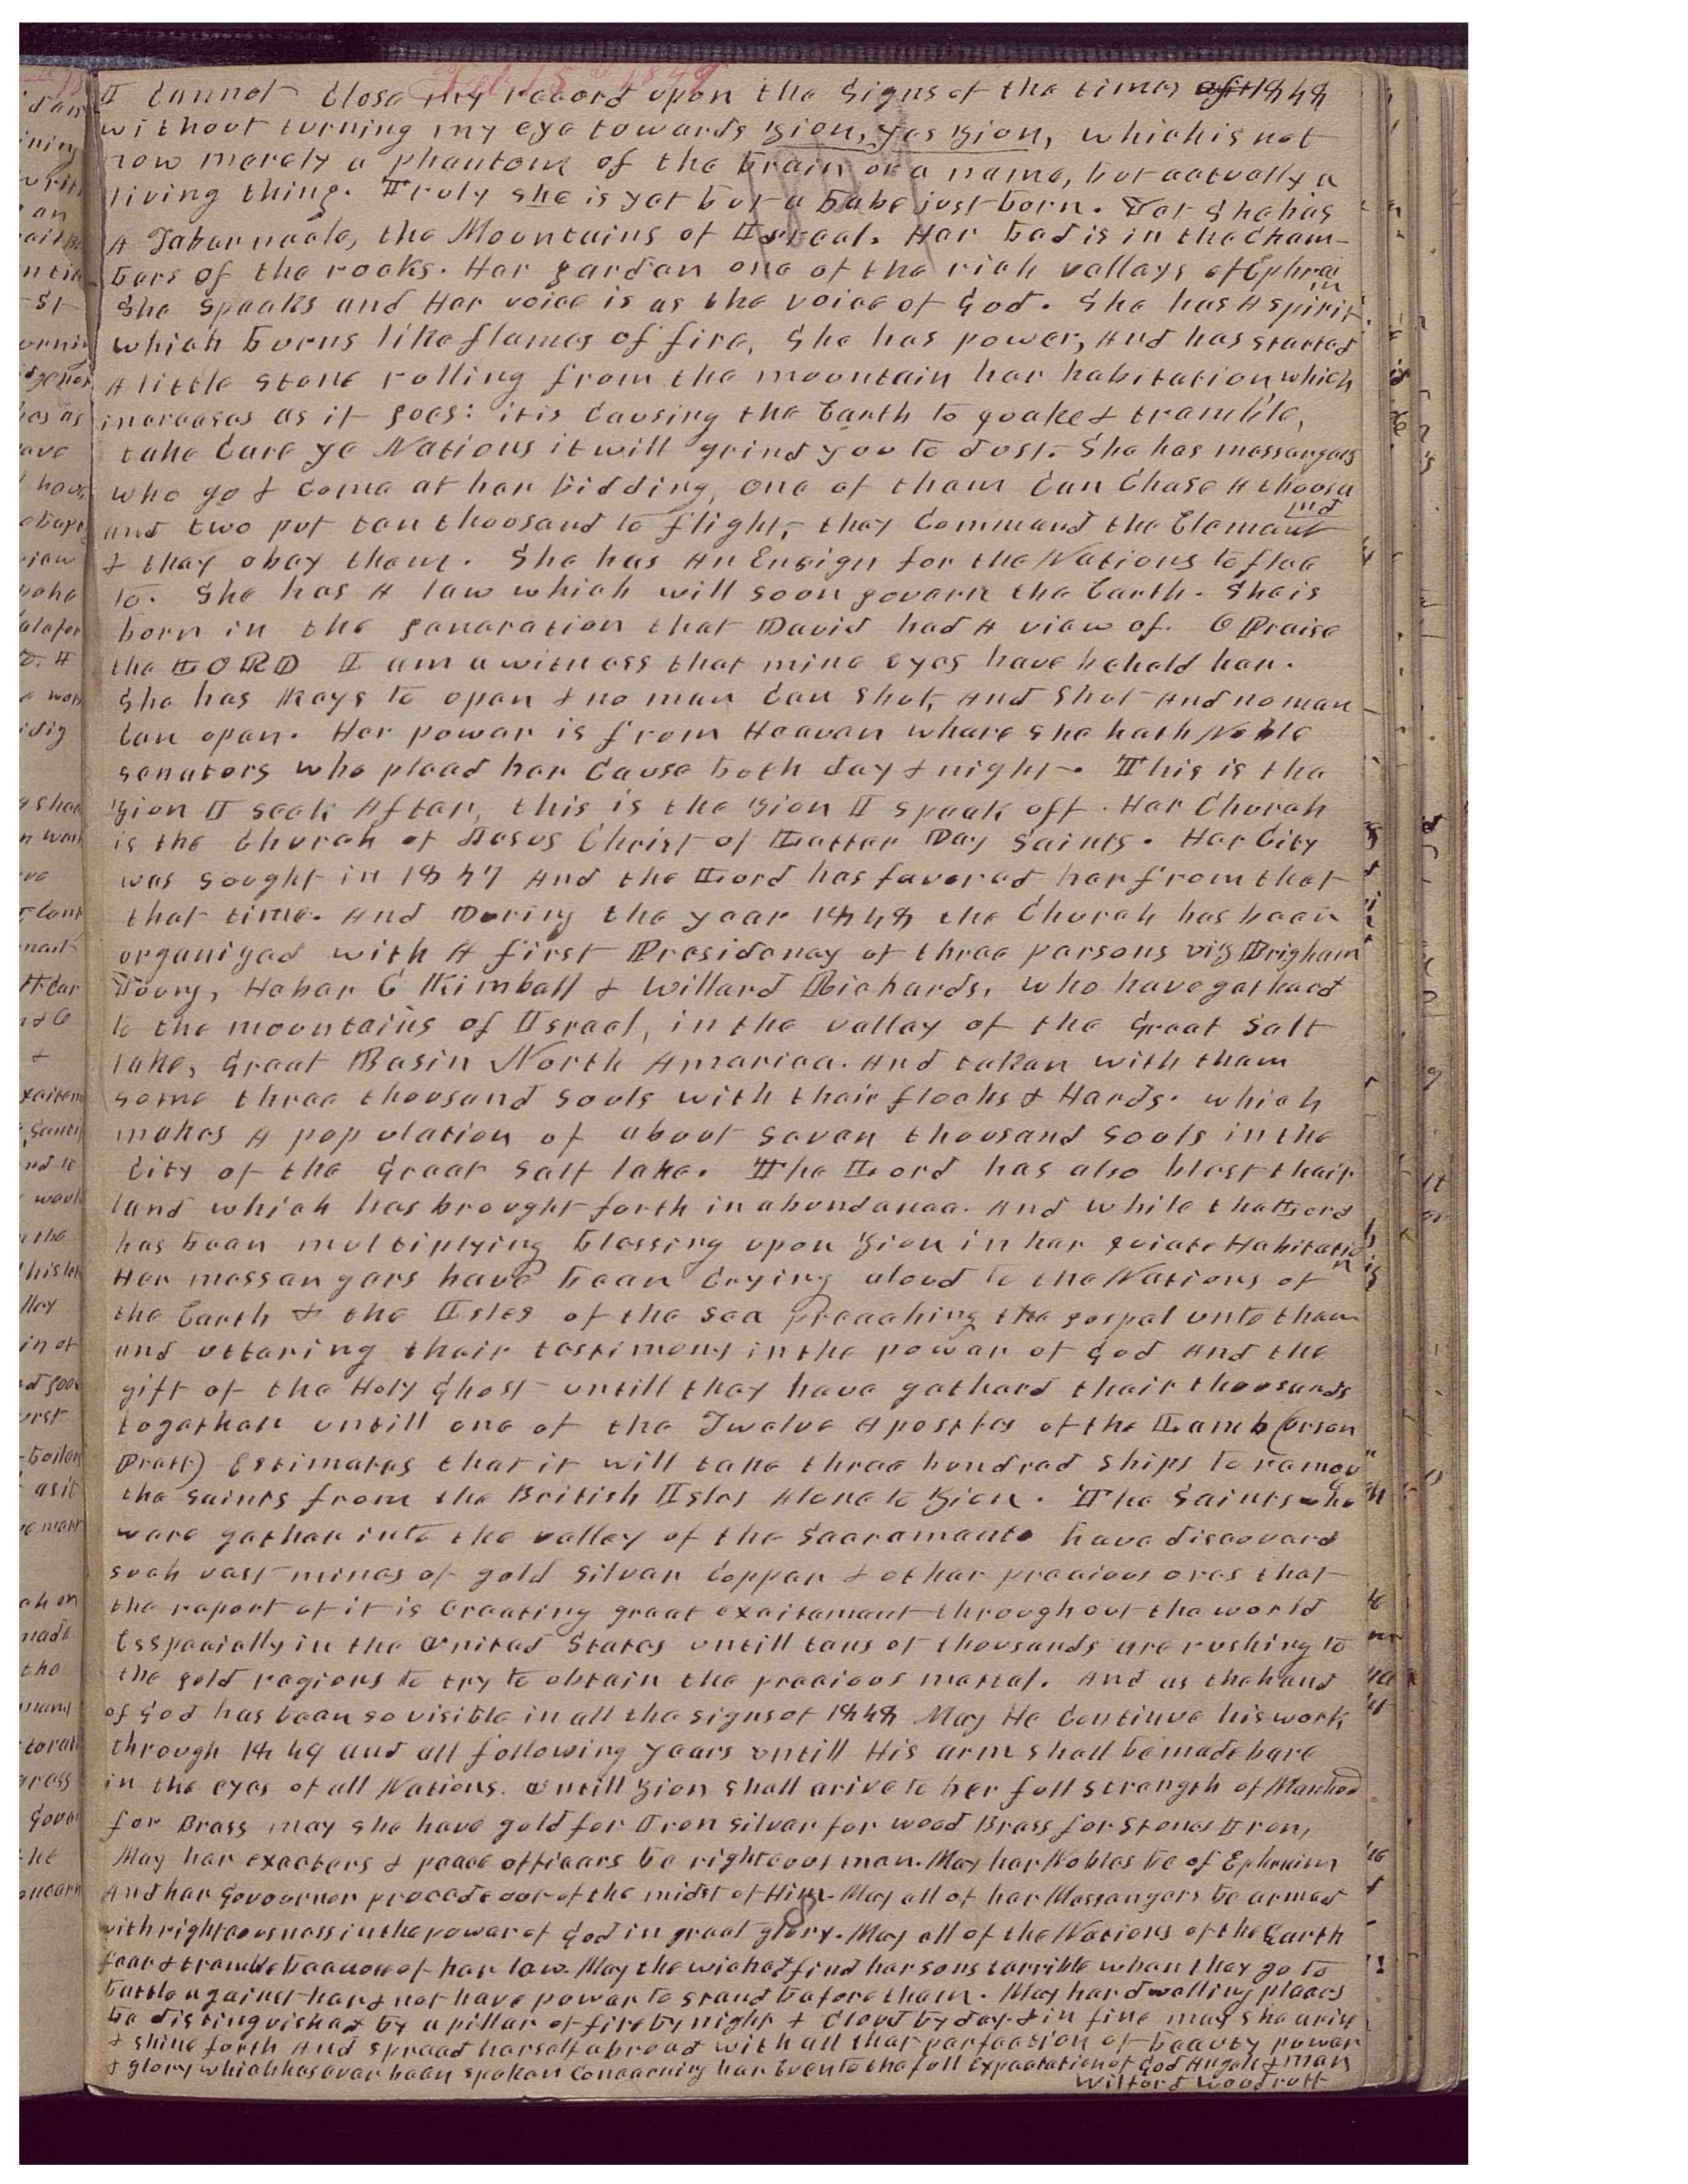 Feb 15th 1849
I cannot Close my record upon the Signs of the times of 1848
without turning my eye towards Zion, yes Zion, which is not
now merely a phantom of the brain or a name, but actually a
living thing. Truly she is yet but a babe just born. Yet She has
A Tabernacle, the Mountains of Israel. Her bed is in the cham-
bers of the rocks. Her garden one of the rich valleys of Ephraim
She speaks and Her voice is as the voice of God. She has A spirit
which burns like flames of fire, She has power, And has started
A little stone rolling from the mountain her habitation which
increases as it goes: it is causing the Earth to quake & tremble,
take Care ye Nations it will grind you to dust. She has messengers
who go & come at her bidding, one of them Can Chase A thousand
and two put ten thousand to flight, they Command the Element
& they obey them. She has An Ensign for the Nations to flee
to. She has A law which will soon govern the Earth. She is
born in the generation that David had A view of. O Praise
the LORD I am a witness that mine eyes have beheld her.
She has Keys to open & no man Can Shut, And Shut And no man
Can open. Her power is from Heaven where she hath Noble
senators who plead her Cause both day & night. This is the
Zion I seek After, this is the Zion I speak off. Her Church
is the Church of Jesus Christ of Latter Day Saints. Her City
was sought in 1847 And the Lord has favored her from that
that time. And During the year 1848 the Church has been
organized with A first Presidency of three persons viz Brigham
Young, Heber C Kimball & Willard Richards, who have gatherd
to the mountains of Israel, in the valley of the Great Salt
lake, Great Basin North America. And taken with them
some three thousand Souls with their flocks & Herds. which
makes A population of about seven thousand Souls in the
City of the Great Salt lake. The Lord has also blest their
land which has brought forth in abundance. And while the Lord
has been multiplying blessing upon Zion in her quiate Habitation
Her messangers have been Crying aloud to the Nations of
the Earth & the Isles of the sea preaching the gospel unto them
and uttering their testimony in the power of God And the
gift of the Holy Ghost untill they have gatherd their thousands
together untill one of the Twelve Apostles of the Lamb (Orson
Pratt) Estimates that it will take three hundred Ships to remove
the Saints from the British Isles Alone to Zion. The Saints who
ware gather into the valley of the Sacramento have discoverd
such vast mines of gold Silver Copper & other precious ores that
the report of it is Creating great excitement throughout the world
Esspecially in the United States untill tens of thousands are rushing to
the gold regions to try to obtain the precious mettal. And as the hand
of God has been so visible in all the signs of 1848 May He Continue his work
through 1849 and all following years untill His arm shall be made bare
in the eyes of all Nations. Untill Zion shall arive to her full Strength of Manhood
for Brass may she have gold for Iron silver for wood Brass for Stones Iron,
May her exacters & peace officers be righteous men. May her Nobles be of Ephraim
And her Govournor proceede out of the midst of Him. May all of her Messangers be armed
with righteousness in the power of God in great glory. May all of the Nations of the Earth
fear & tremble because of her law. May the wicked find her sons terrible when they go to
battle against her & not have power to stand before them. May her dwelling places
be distinguished by a pillar of fire by night & Cloud by day. & in fine may she arise
& shine forth And spread herself abroad with all that perfection of beauty power
& glory which has ever been spoken Concerning her Even to the full expectation of God Angels & man
Wilford Woodruff